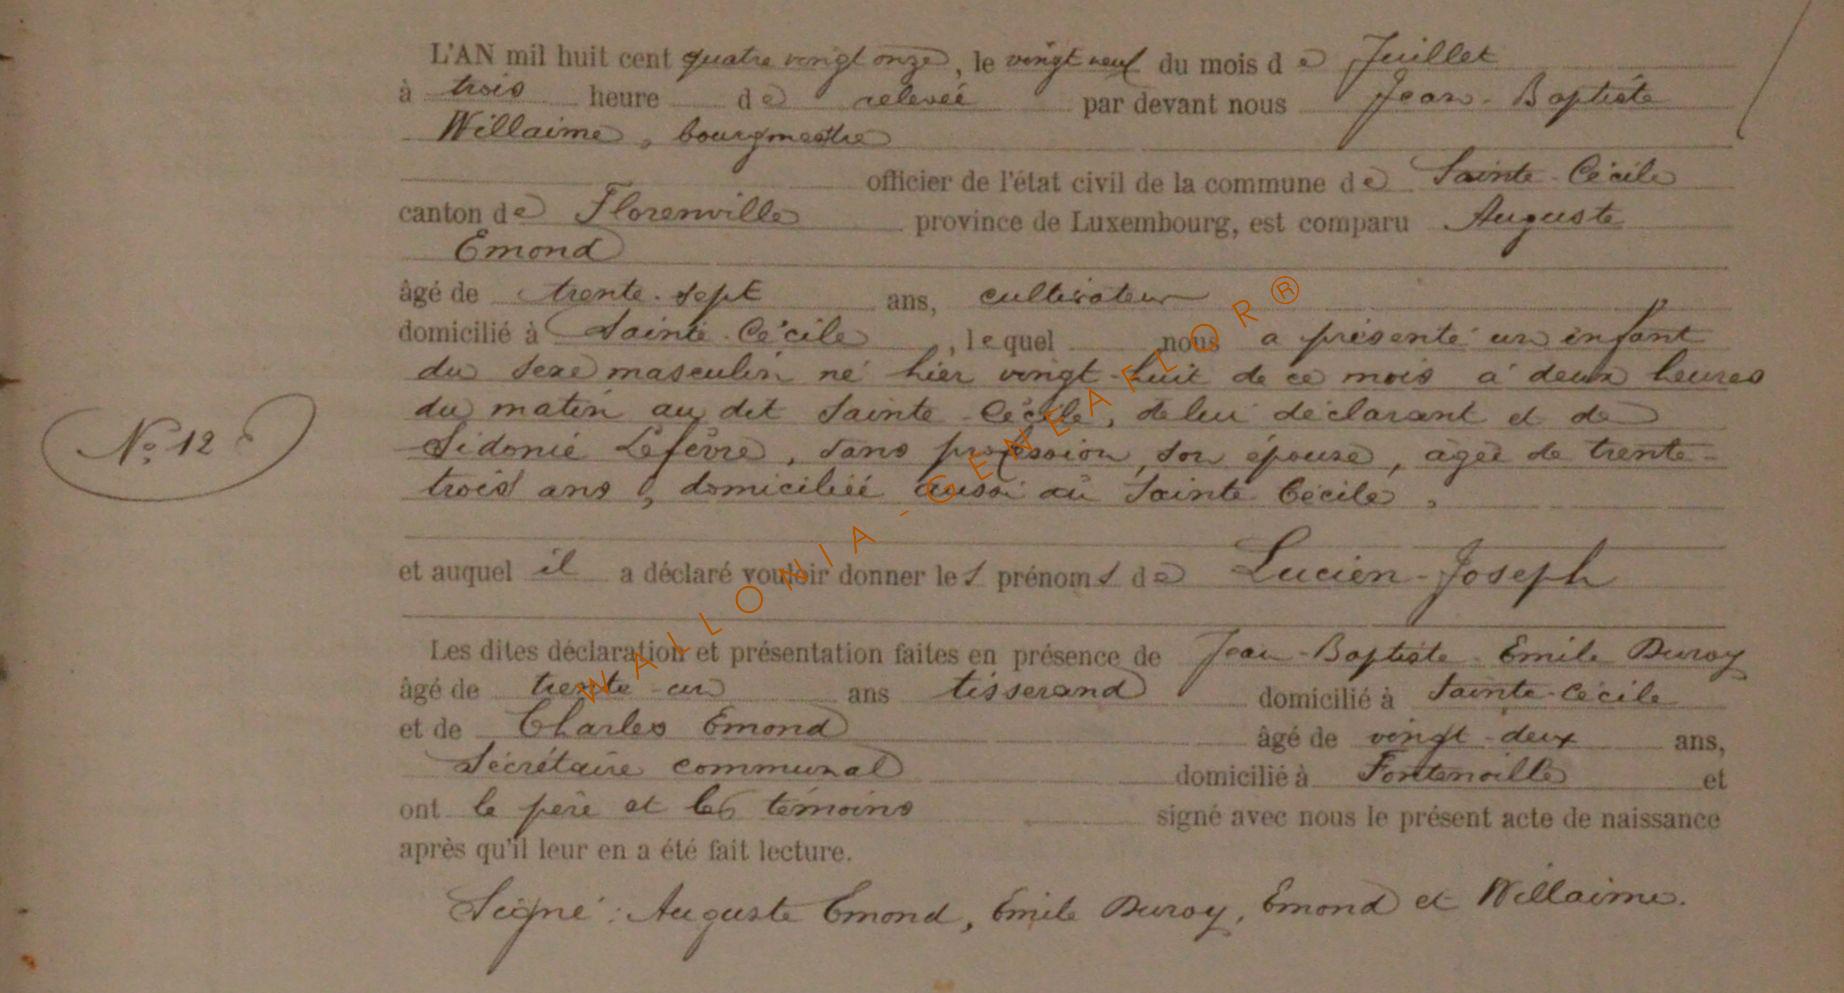 L'AN mil huit cent quatre vingt onze, le vingt neuf du mois de Juillet
à trois heure de relevée par devant nous Jean-Baptiste
Willaime, bourgmestre
officier de l'état civil de la commune de Sainte-Cécile
canton de Florenville province de Luxembourg, est comparu Auguste
Emond
âgé de trente-sept ans, cultivateur
domicilié à Sainte-Cécile, lequel nous a présenté un enfant
du sexe masculin né hier vingt-huit de ce mois à deux heures
du matin au dit Sainte-Cécile, de lui déclarant et de
N° 12
Sidonie Lefèvre, sans profession, son épouse, âgée de trente-
trois ans, domiciliée aussi à Sainte Cécile,
et auquel il a déclaré vouloir donner les prénoms de Lucien-Joseph
Les dites déclaration et présentation faites en présence de Jean-Baptiste-Emile Duroy
âgé de trente-un ans tisserand domicilié à Sainte-Cécile
et de Charles Emond âgé de vingt-deux ans,
Secrétaire communal domicilié à Fontenoille et
ont le père et les témoins signé avec nous le présent acte de naissance
après qu'il leur en a été fait lecture.
Signé: Auguste Emond, Emile Duroy, Emond et Willaime.
WALLONIA-GENEAFLOR®